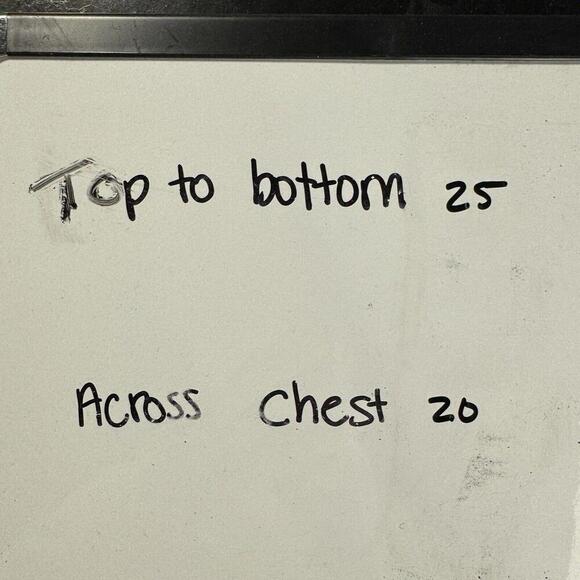 Top to bottom 25
Across Chest 20